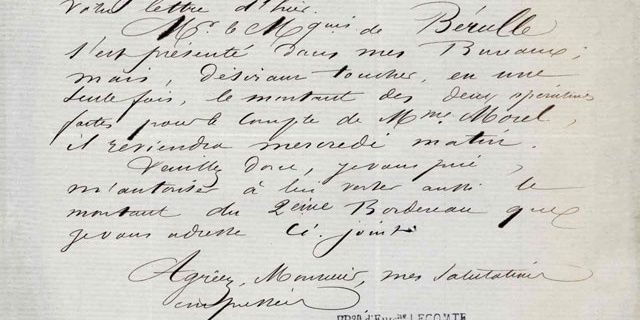 Votre lettre d'hier.
Mr. le Mquis de Bérulle
s'est présenté dans mes Bureaux;
mais, désirant toucher, en une
seule fois, le montant des deux opérations
faites pour le Compte de Mme Morel,
il reviendra mercredi matin.
Veuillez donc, je vous prie,
m'autoriser à lui verser aussi le
montant du 2eme Bordereau que
je vous adresse Ci-joint.
Agréez, Monsieur, mes salutations
empressées
LECOMTE